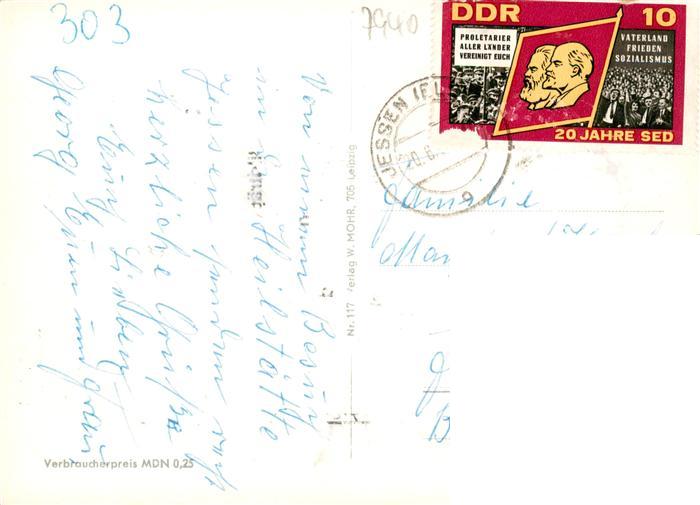 303
7940
DDR 10
PROLETARIER
ALLER LÄNDER
VEREINIGT EUCH
VATERLAND
FRIEDEN
SOZIALISMUS
20 JAHRE SED
JESSEN
20.6.
Familie
Von einem Besuch
in Heilstätte
Jessen senden
herzliche Grüße
Eure Lieben
Georg und Frau
Nr. 117 Verlag W. MOHR, 705 Leipzig
Verbraucherpreis MDN 0,25